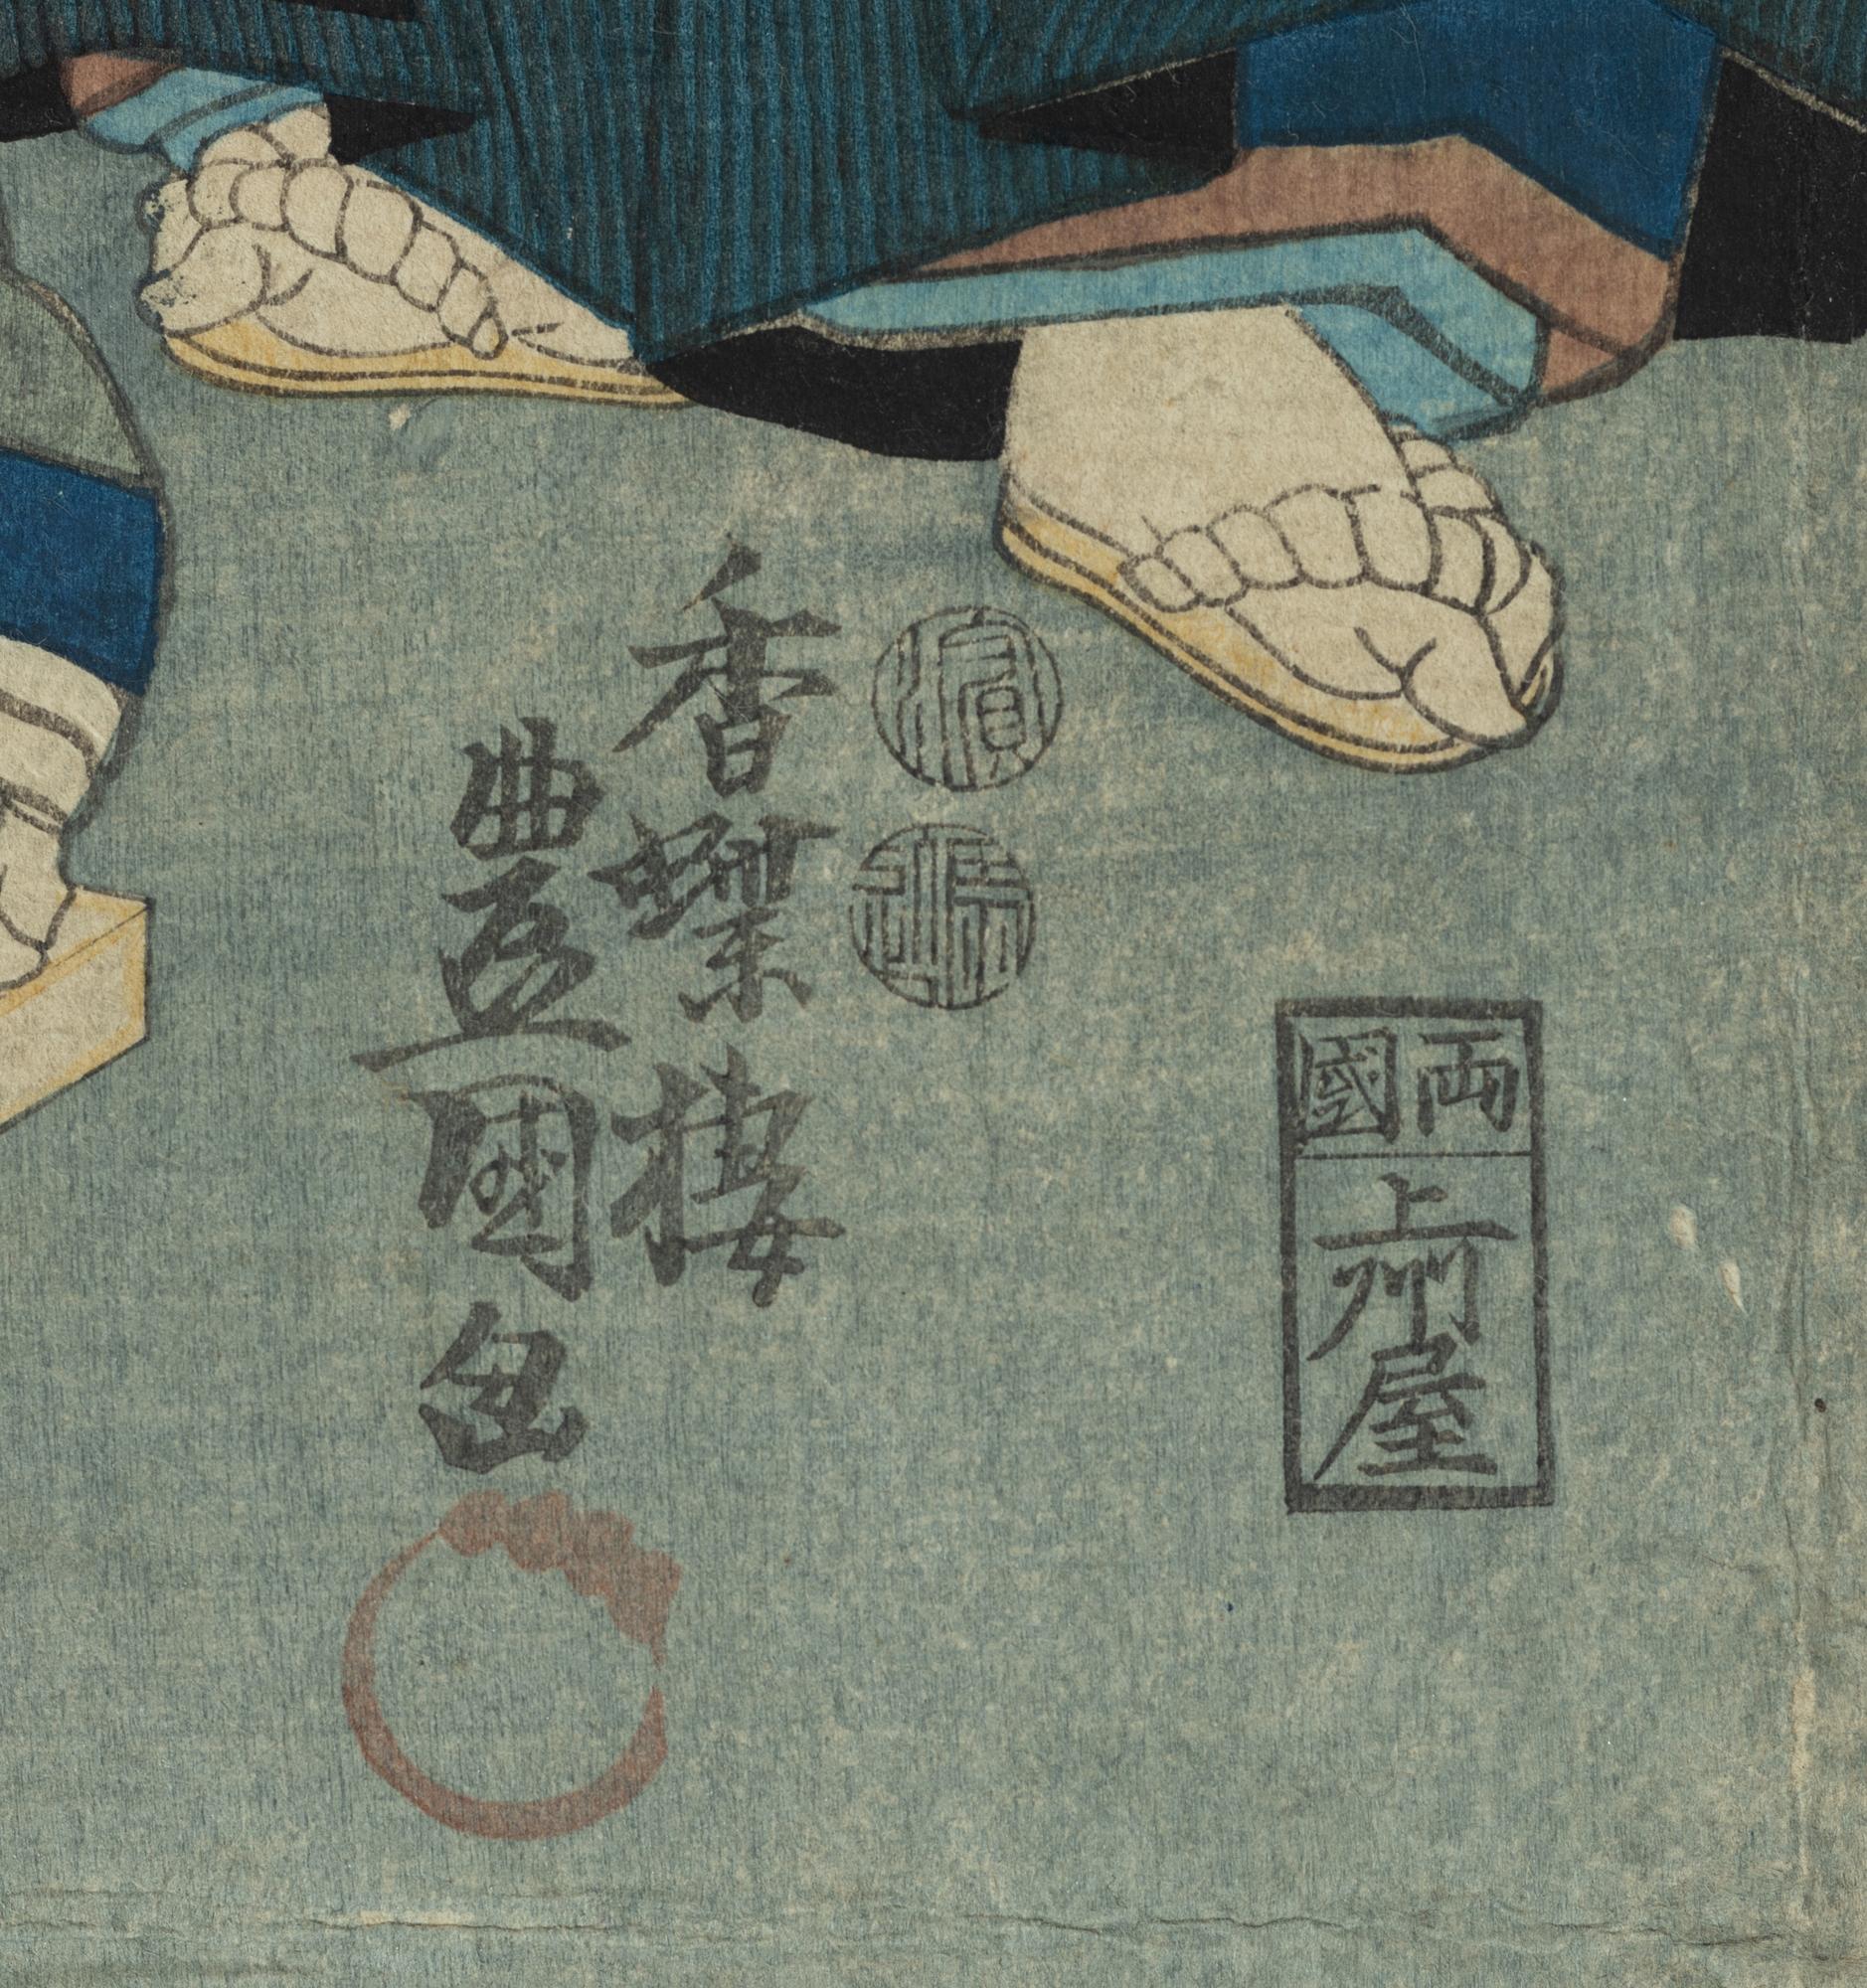 濱
香蝶楼
豊國画
両國
上州屋